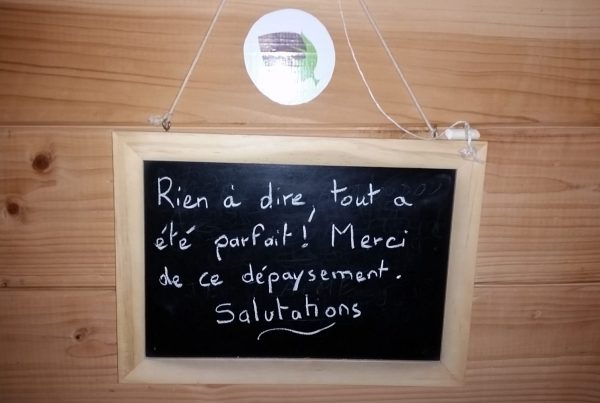 Rien à dire, tout a
été parfait! Merci
de ce dépaysement.
Salutations